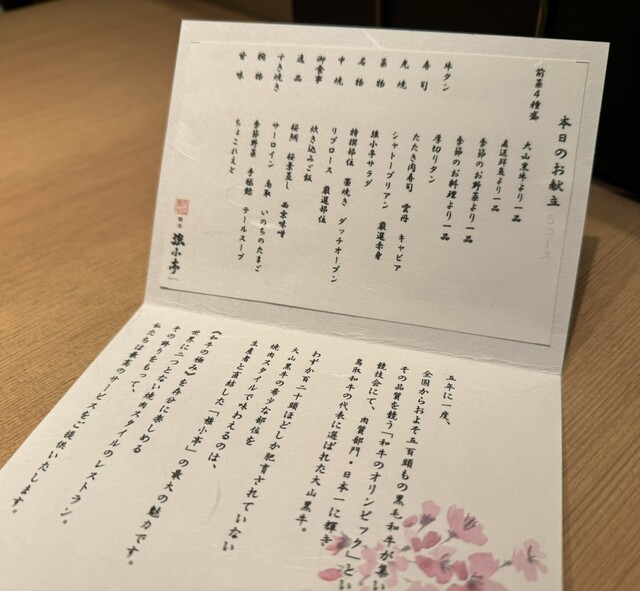 本日のお献立 Sコース
前菜4種盛
大山黒牛より一品
直送鮮魚より一品
季節のお野菜より一品
季節のお料理より一品
牛タン 厚切りタン
寿司 たたき肉寿司 雲丹 キャビア
先焼 シャトーブリアン 厳選赤身
菜物 強小牛サラダ
名物 特撰部位 藁焼き ダッチオーブン
中焼 リブロース 厳選部位
御食事 炊き込みご飯
逸品 桜鯛 桜葉蒸し 西京味噌
すき焼き サーロイン 鳥取 いのちのたまご
椀物 季節野菜 手延麺 テールスープ
甘味 ちょこれえと
強小亭
五年に一度、
全国からおよそ五百頭もの黒毛和牛が集い
その品質を競う「和牛のオリンピック」とい
競技会にて、肉質部門・日本一に輝き
鳥取和牛の代表に選ばれた大山黒牛。
わずか百二十頭ほどしか肥育されていない
大山黒牛の希少な部位を
焼肉スタイルで味わえるのは、
生産者と直結した「強小亭」の最大の魅力です。
《和牛の極み》を存分に楽しめる
世界に二つとない焼肉スタイルのレストラン。
その誇りをもって、
私たちは最高のサービスをご提供いたします。